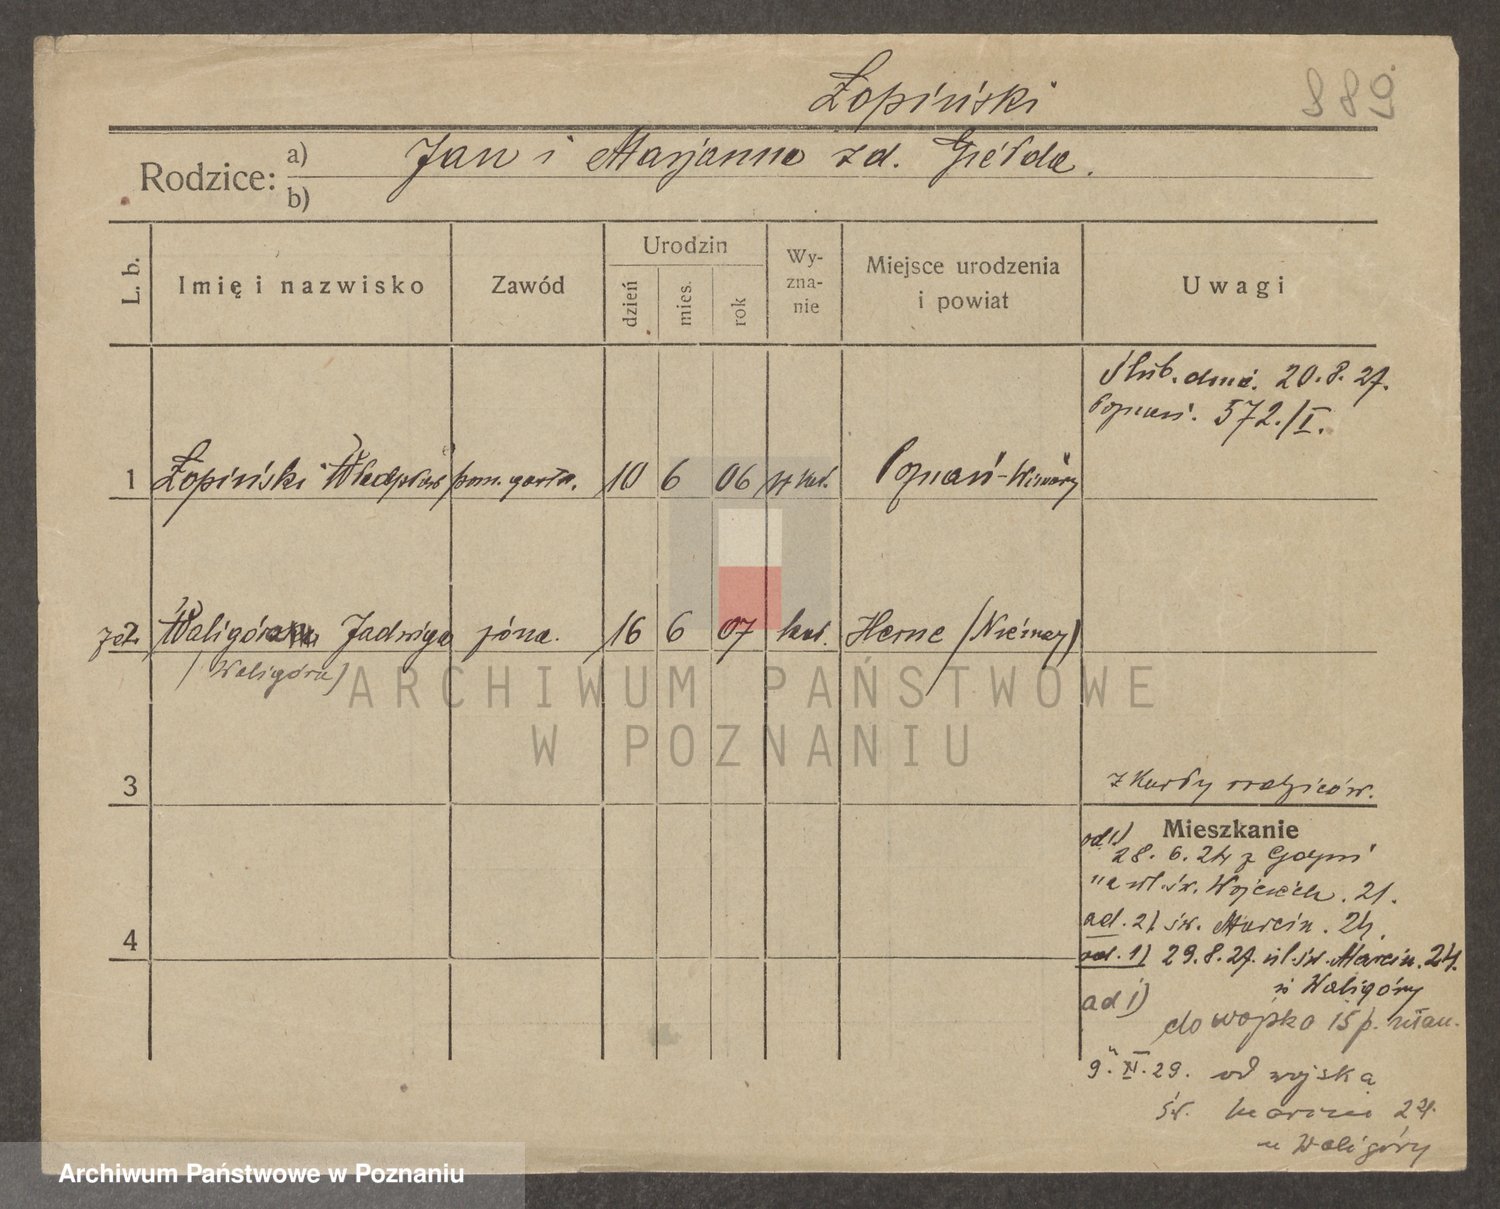 Łopiński
889
Rodzice: a) b) Jan i Marjanna zd. Giełda.
L. b. Imię i nazwisko Zawód Urodzin dzień mies. rok Wy-zna-nie Miejsce urodzenia i powiat Uwagi
Ślub. dnia. 20.8.27.
Poznań. 572./I.
1 Łopiński Władysław pom. 10 6 06 kat. Poznań-Winiary
2 Waligóra Jadwiga żona. 16 6 07 kat. Herne (Niemcy)
(Waligóra)
ARCHIWUM PAŃSTWOWE
W POZNANIU
3
z karty rodziców.
Mieszkanie
ad 1) 28.6.24 z Gdyni
na ul. św. Wojciech. 21.
4
ad. 2) św. Marcin. 24.
ad. 1) 29.8.27. ul. św. Marcin. 24.
u Waligóry
ad 1)
do wojska 15 p. ułan.
9. XI. 29. od wojska
św. Marcin 24.
u Waligóry
Archiwum Państwowe w Poznaniu